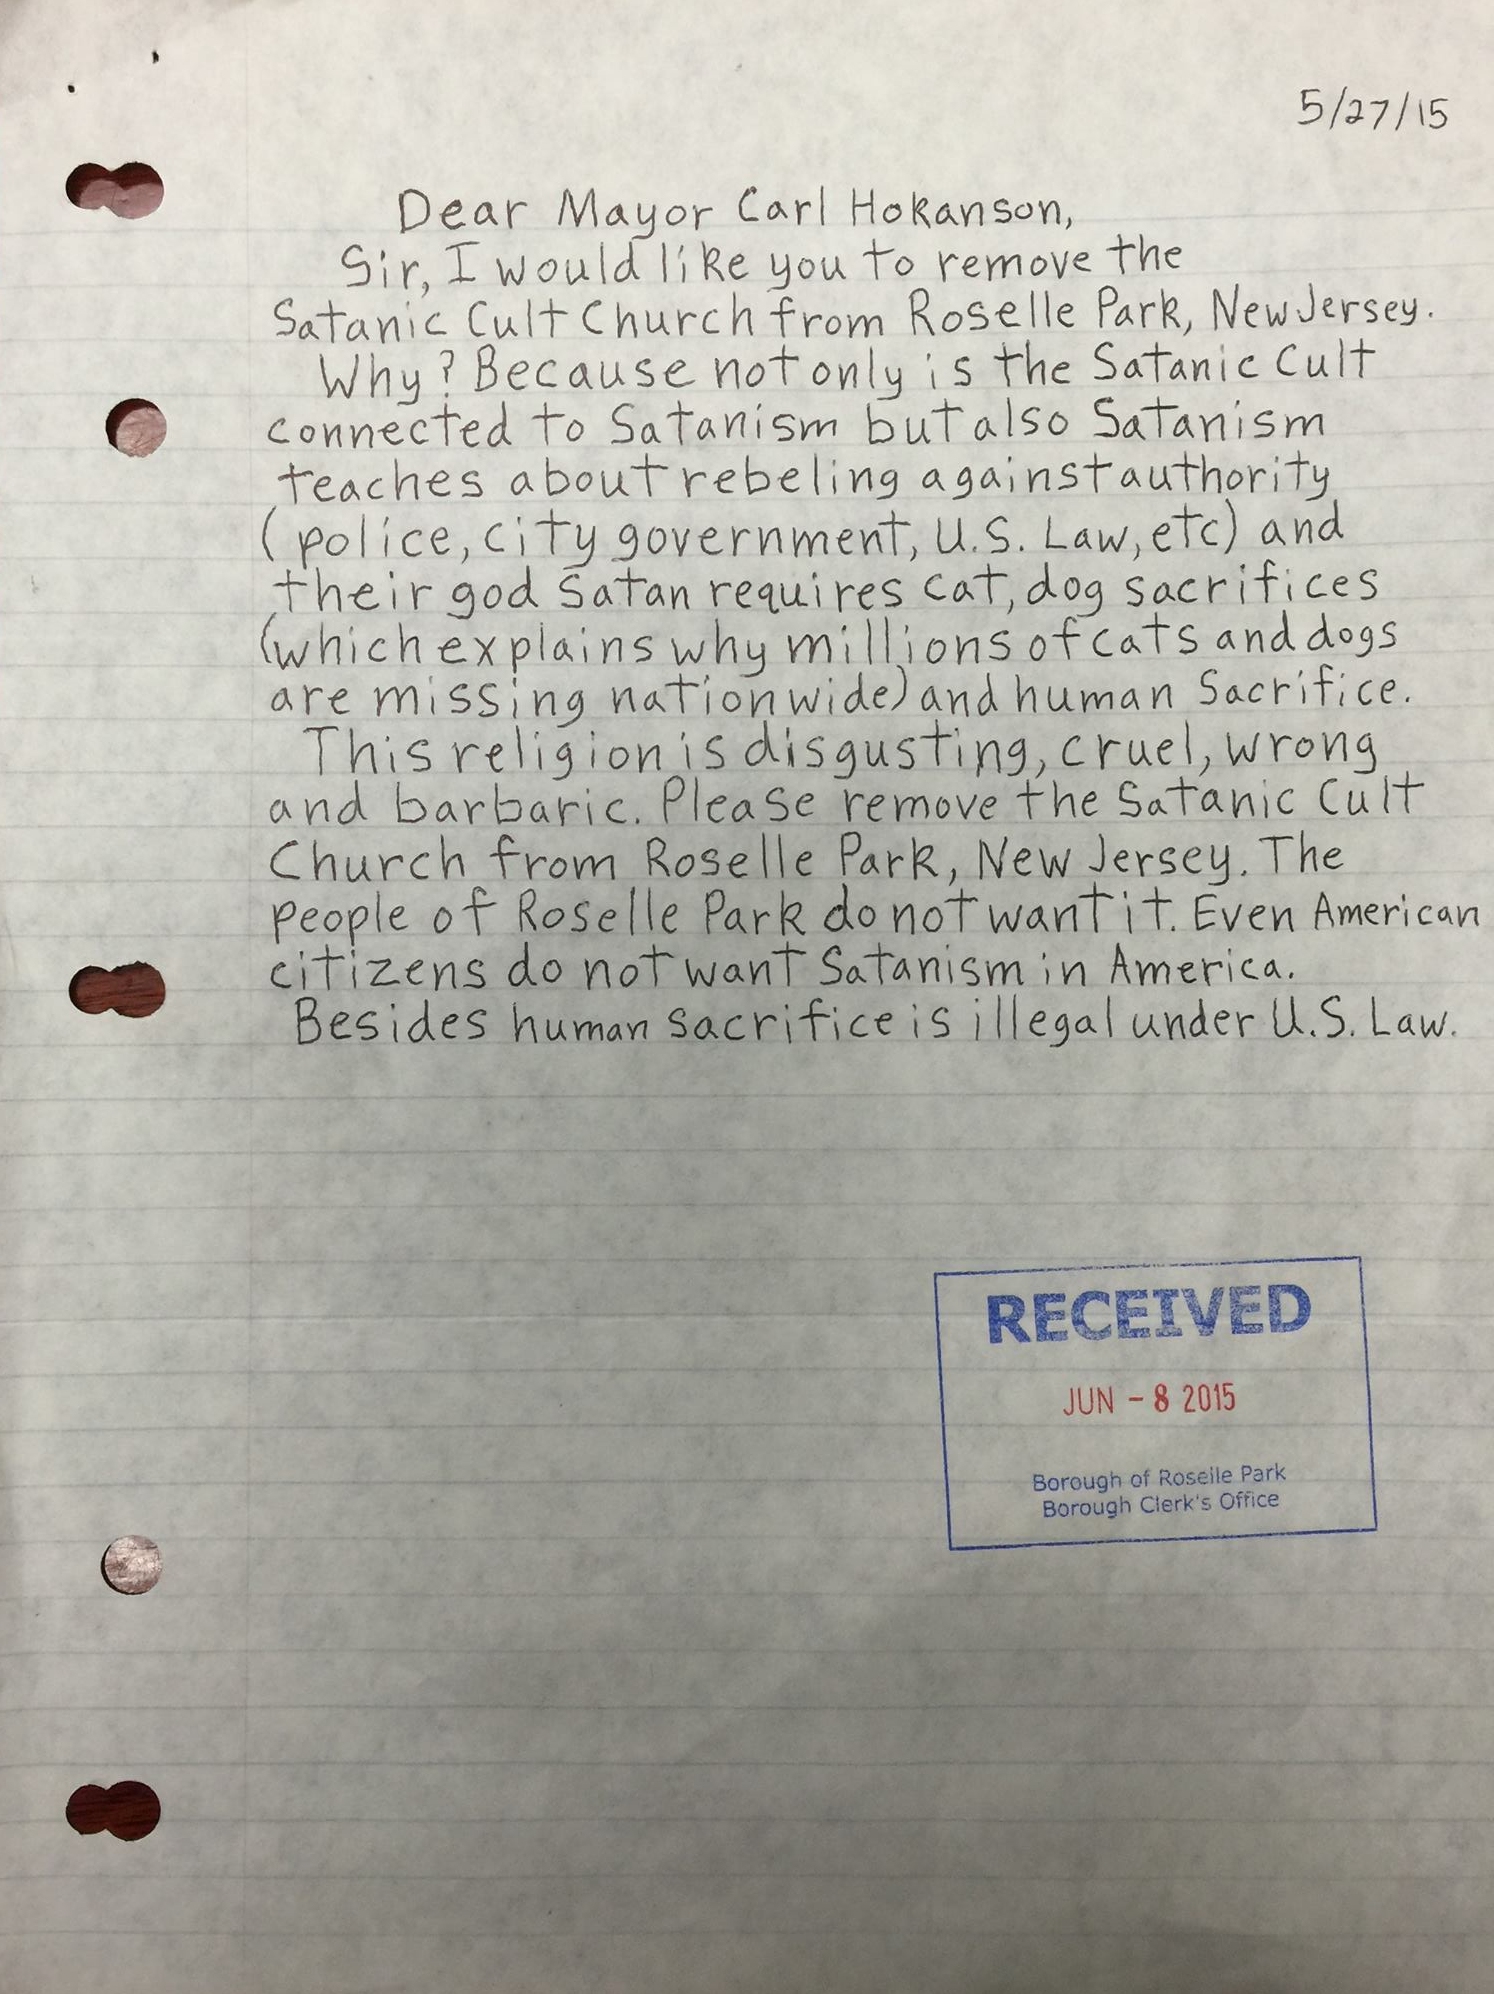 5/27/15
Dear Mayor Carl Hokanson,
Sir, I would like you to remove the
Satanic Cult Church from Roselle Park, New Jersey.
Why? Because not only is the Satanic Cult
connected to Satanism but also Satanism
teaches about rebeling against authority
(police, city government, U.S. Law, etc) and
their god Satan requires cat, dog sacrifices
(which explains why millions of cats and dogs
are missing nationwide) and human Sacrifice.
This religion is disgusting, cruel, wrong
and barbaric. Please remove the Satanic Cult
Church from Roselle Park, New Jersey. The
people of Roselle Park do not want it. Even American
citizens do not want Satanism in America.
Besides human sacrifice is illegal under U.S. Law.
RECEIVED
JUN - 8 2015
Borough of Roselle Park
Borough Clerk's Office